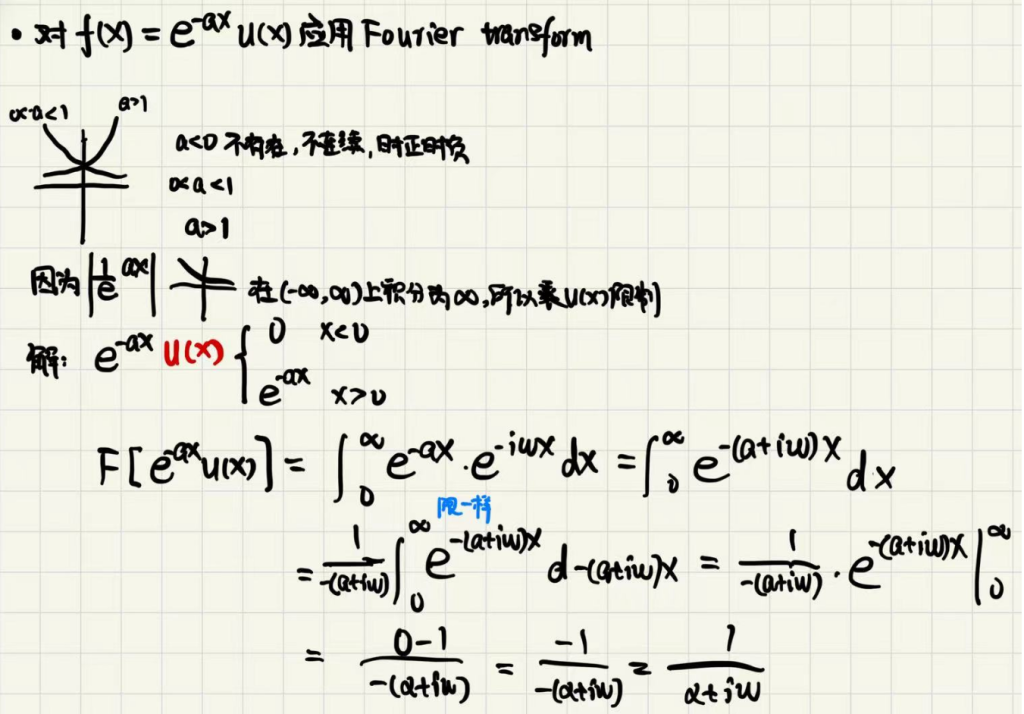 • 对 f(x) = e^{-ax} u(x) 应用 Fourier transform
0<a<1 a>1
a<0 不存在,不连续,时正时负
0<a<1
a>1
因为 |1/e^{ax}| 在(-∞,∞)上积分为∞,所以乘u(x)限制
解: e^{-ax} u(x) { 0 x<0
e^{-ax} x>0
F[e^{-ax}u(x)] = ∫_0^∞ e^{-ax}·e^{-iwx} dx = ∫_0^∞ e^{-(a+iw)x} dx
限一样
= 1/-(a+iw) ∫_0^∞ e^{-(a+iw)x} d-(a+iw)x = 1/-(a+iw) · e^{-(a+iw)x} |_0^∞
= 0-1/-(a+iw) = -1/-(a+iw) = 1/a+iw